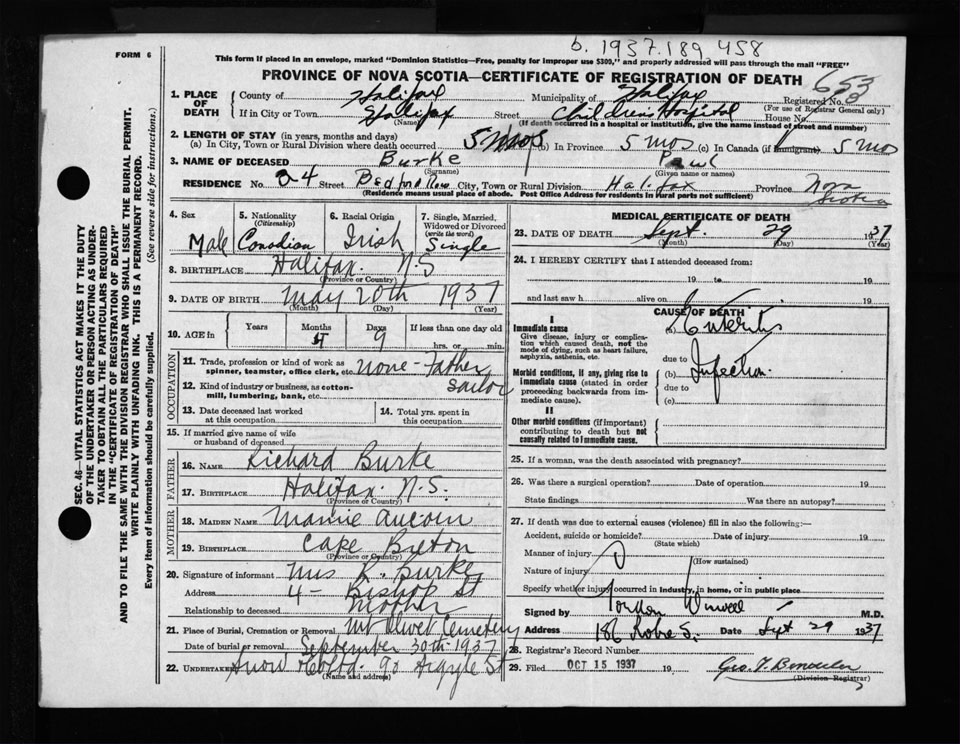 b. 1937.189.458
FORM 6
This form if placed in an envelope, marked "Dominion Statistics—Free, penalty for improper use $300," and properly addressed will pass through the mail "FREE"
PROVINCE OF NOVA SCOTIA—CERTIFICATE OF REGISTRATION OF DEATH
653
1. PLACE OF DEATH
County of Halifax Municipality of Halifax Registered No.
(For use of Registrar General only)
If in City or Town Halifax Street Children Hospital House No.
(Name) (If death occurred in a hospital or institution, give the name instead of street and number)
2. LENGTH OF STAY (in years, months and days)
(a) In City, Town or Rural Division where death occurred 5 mos (b) In Province 5 mos (c) In Canada (if immigrant) 5 mos
3. NAME OF DECEASED Burke Paul
(Surname) (Given name or names)
RESIDENCE No. 24 Street Bedford Row City, Town or Rural Division Halifax Province Nova Scotia
(Residence means usual place of abode. Post Office Address for residents in Rural parts not sufficient)
4. Sex
Male
5. Nationality
(Citizenship)
Canadian
6. Racial Origin
Irish
7. Single, Married, Widowed or Divorced
(write the word)
Single
8. BIRTHPLACE Halifax. N.S
(Province or Country)
9. DATE OF BIRTH May 20th 1937
(Month) (Day) (Year)
10. AGE in
Years
Months
Days
9
If less than one day old
hrs. or min.
OCCUPATION
11. Trade, profession or kind of work as spinner, teamster, office clerk, etc. none - Father
sailor
12. Kind of industry or business, as cotton-mill, lumbering, bank, etc.
13. Date deceased last worked at this occupation
14. Total yrs. spent in this occupation
15. If married give name of wife or husband of deceased
FATHER
16. NAME Richard Burke
17. BIRTHPLACE Halifax. N.S.
(Province or Country)
MOTHER
18. MAIDEN NAME Mamie Aucoin
19. BIRTHPLACE Cape Breton
(Province or Country)
20. Signature of informant Mrs R. Burke
Address 4 - Bishop St
Relationship to deceased Mother
21. Place of Burial, Cremation or Removal Mt Olivet Cemetery
Date of burial or removal September 30th 1937
22. UNDERTAKER Snow 90 Argyle St
(Name and address)
MEDICAL CERTIFICATE OF DEATH
23. DATE OF DEATH Sept. 29 1937
(Month) (Day) (Year)
24. I HEREBY CERTIFY that I attended deceased from:
19 to 19
and last saw h alive on 19
CAUSE OF DEATH
I
Immediate cause
Give disease, injury or complication which caused death, not the mode of dying, such as heart failure, asphyxia, asthenia, etc.
(a) Enteritis
due to
Morbid conditions, if any, giving rise to immediate cause (stated in order proceeding backwards from immediate cause).
(b) Infection
due to
(c)
II
Other morbid conditions (if important) contributing to death but not causally related to immediate cause.
25. If a woman, was the death associated with pregnancy?
26. Was there a surgical operation? Date of operation 19
State findings Was there an autopsy?
27. If death was due to external causes (violence) fill in also the following:—
Accident, suicide or homicide? Date of injury 19
(State which)
Manner of injury
(How sustained)
Nature of injury
Specify whether injury occurred in industry, in home, or in public place
Signed by Gordon M.D.
Address 186 Robie S. Date Sept 29 1937
28. Registrar's Record Number
29. Filed OCT 15 1937 19 Geo.
(Division Registrar)
SEC. 46—VITAL STATISTICS ACT MAKES IT THE DUTY
OF THE UNDERTAKER OR PERSON ACTING AS UNDER-
TAKER TO OBTAIN ALL THE PARTICULARS REQUIRED
IN THE "CERTIFICATE OF REGISTRATION OF DEATH"
AND TO FILE THE SAME WITH THE DIVISION REGISTRAR WHO SHALL ISSUE THE BURIAL PERMIT.
WRITE PLAINLY WITH UNFADING INK. THIS IS A PERMANENT RECORD.
Every item of information should be carefully supplied. (See reverse side for instructions.)